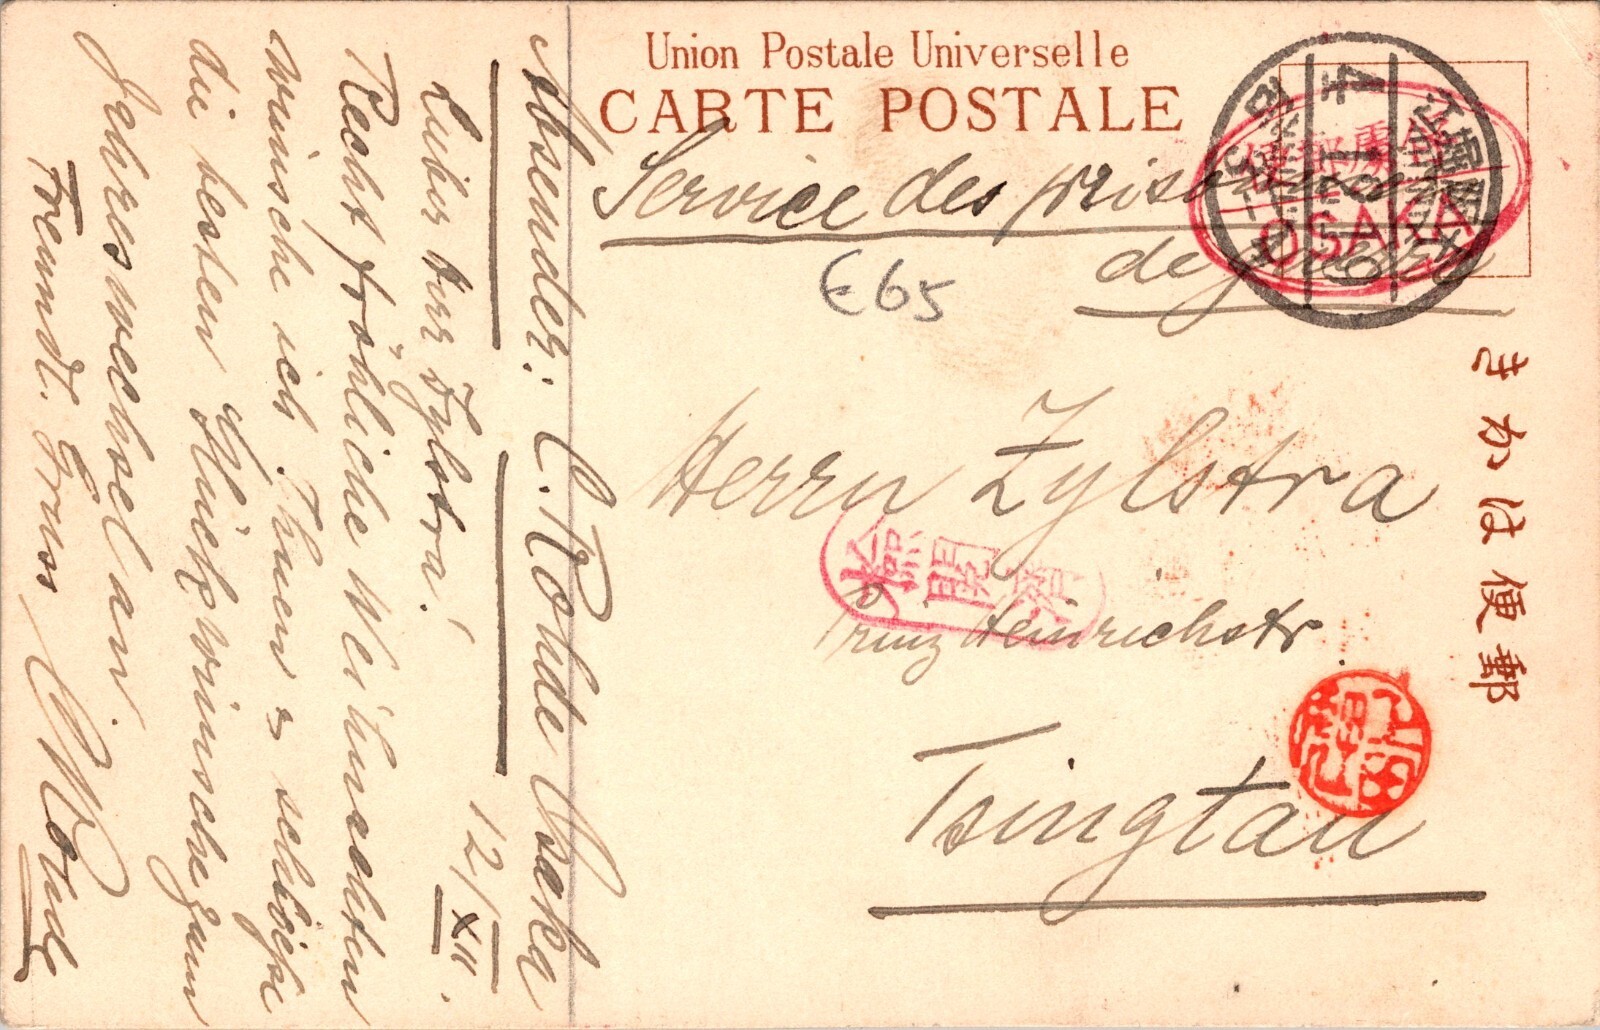 Union Postale Universelle
CARTE POSTALE
Service des prisonniers
de guerre
€65
Herrn Zylstra
Prinz Heinrichstr.
Tsingtau
きかは便郵
OSAKA
Absender: C. Rohde Osaka
12/XII.
Lieber Herr Zylstra!
Recht fröhliche Weihnachten
wünsche ich Ihnen & schließe
die besten Glückwünsche zum
Jahreswechsel an.
Freundl. Gruss C Rohde